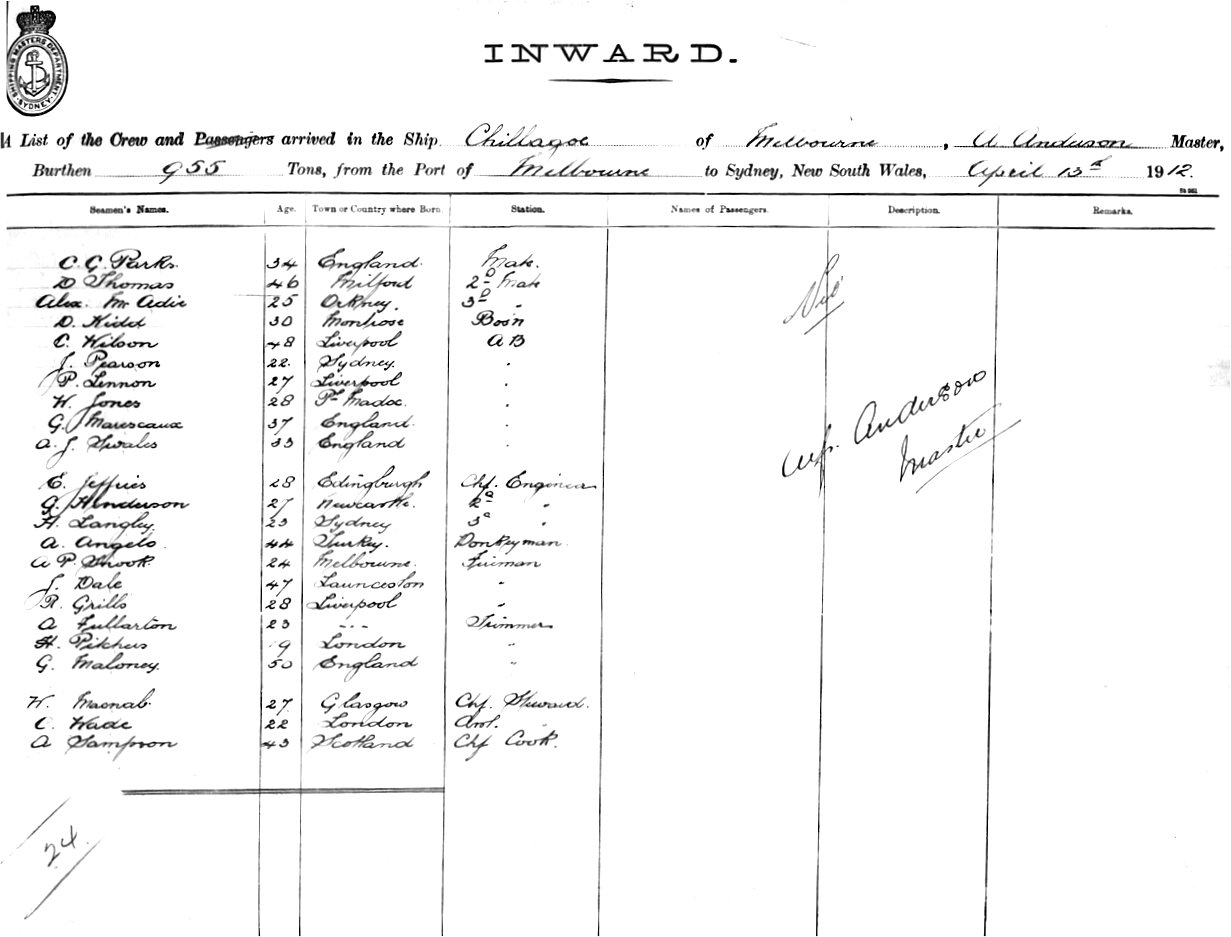 SHIPPING MASTERS DEPARTMENT
SYDNEY
INWARD.
A List of the Crew and Passengers arrived in the Ship Chillagoe of Melbourne, A Anderson Master,
Burthen 955 Tons, from the Port of Melbourne to Sydney, New South Wales, April 13th 1912.
Seamen's Names. Age. Town or Country where Born. Station. Names of Passengers. Description. Remarks.
C. G. Parks. 34 England. Mate.
D Thomas 46 Milford 2D Mate
Alex. Mc Adie 25 Orkney. 3D "
D. Kidd 30 Montrose Bosn
C. Wilson 48 Liverpool A B
J. Pearson 22. Sydney. "
P. Lennon 27 Liverpool "
H. Jones 28 Pt Madoc. "
G. Marescaux 37 England. "
A. J. Swales 33 England "
E. Jeffries 28 Edingburgh Chf. Engineer
G. Henderson 27 Newcastle. 2d "
H. Langley. 23 Sydney 3d "
A. Angelo 44 Turkey. Donkeyman.
A P. Snook. 24 Melbourne. Fireman
J. Dale 47 Launceston "
R. Grills 28 Liverpool "
A Fullarton 23 - - - Trimmer
H. Pitchers 19 London "
G. Maloney. 50 England "
H. Macnab. 27 Glasgow Chf. Steward.
C. Wade 22 London Asst. "
A Sampson 43 Scotland Chf Cook.
Nil
Anderson
Master
24.